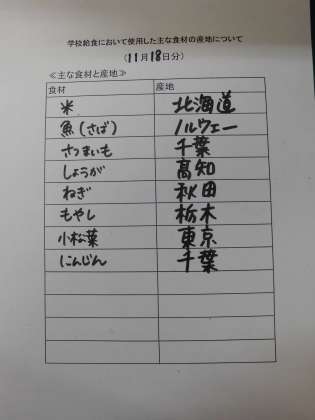 学校給食において使用した主な食材の産地について
（11月18日分）
≪主な食材と産地≫
食材 産地
米 北海道
魚(さば) ノルウェー
さつまいも 千葉
しょうが 高知
ねぎ 秋田
もやし 栃木
小松菜 東京
にんじん 千葉